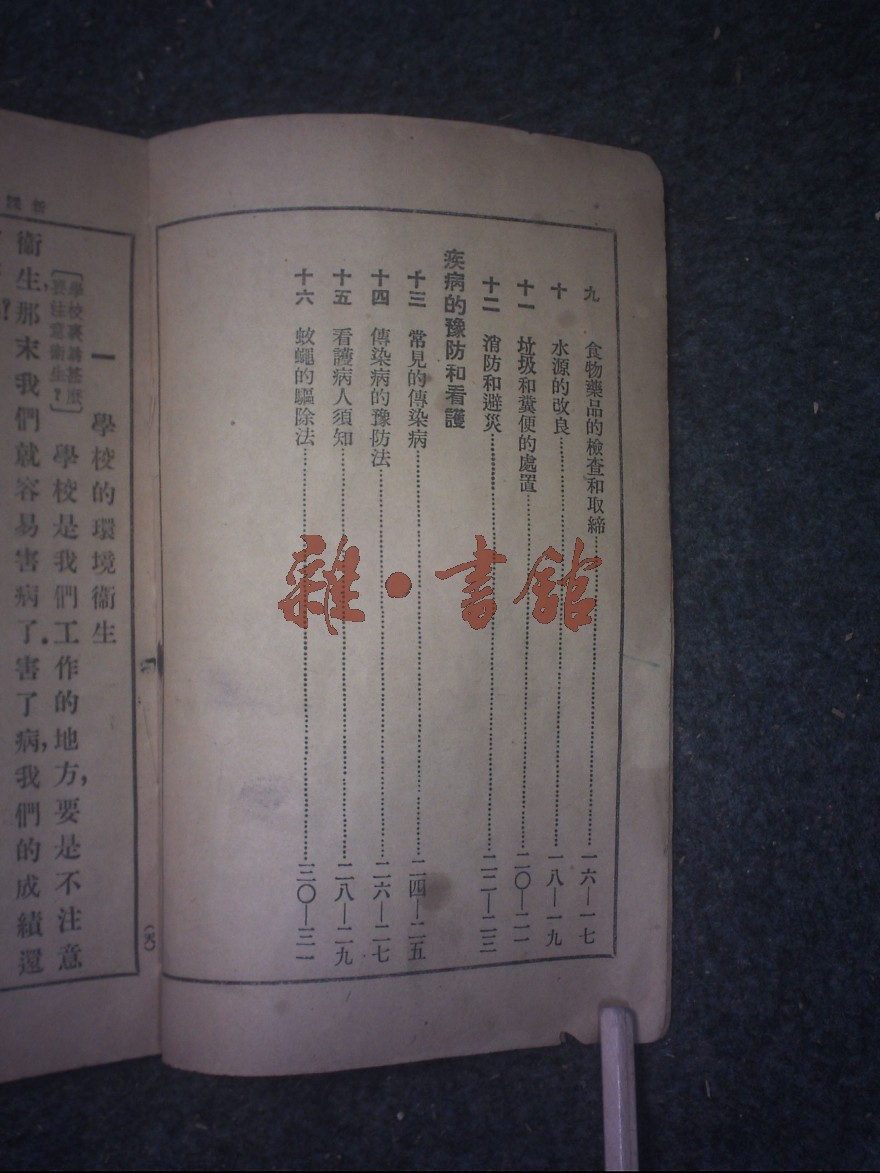 九 食物藥品的檢查和取締 一六—一七
十 水源的改良 一八—一九
十一 垃圾和糞便的處置 二〇—二一
十二 消防和避災 二二—二三
疾病的豫防和看護
十三 常見的傳染病 二四—二五
十四 傳染病的豫防法 二六—二七
十五 看護病人須知 二八—二九
十六 蚊蠅的驅除法 三〇—三一
雜·書館
一 學校的環境衞生
〔學校裏爲甚麽
要注意衞生?〕
學校是我們工作的地方,要是不注意
衞生,那末我們就容易害病了.害了病,我們的成績還